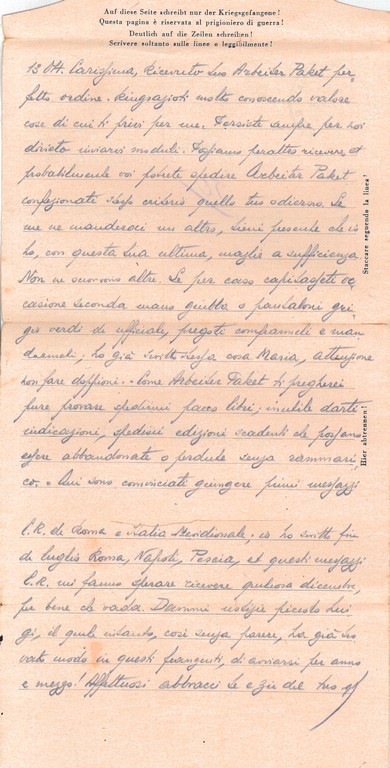 Auf diese Seite schreibt nur der Kriegsgefangene!
Questa pagina è riservata al prigioniero di guerra!
Deutlich auf die Zeilen schreiben!
Scrivere soltanto sulle linee e leggibilmente!
13 Ott. Carissima, Ricevuto tuo Arbeiter Paket per-
fetto ordine. Ringrazioti molto conoscendo valore
cose di cui ti privi per me. Persiste sempre per noi
divieto inviarvi moduli. Possiamo peraltro ricevere, et
probabilmente voi potrete spedire Arbeiter Paket
confezionati stesso criterio quello tuo odierno. Se
me ne manderai un altro, tieni presente che io
ho, con questa tua ultima, maglie a sufficienza.
Non ne occorrono altre. Se per caso capitasseti oc-
casione seconda mano giubba o pantaloni gri-
gio verdi da ufficiale, pregoti comprarmeli e man-
darmeli; ho già scritto stessa cosa Maria, attenzione
non fare doppioni. Come Arbeiter Paket ti pregherei
pure provare spedirmi pacco libri; inutile darti
indicazioni, spedisci edizioni scadenti che possano
essere abbandonate o perdute senza rammari-
co. Qui sono cominciati giungere primi messaggi
C.R. da Roma e Italia Meridionale, io ho scritto fin
da luglio Roma, Napoli, Pescia, et questi messaggi
C.R. mi fanno sperare ricevere qualcosa dicembre,
se bene che vada. Dammi notizie piccolo Lui
gi, il quale intanto, così senza parere, ha già tro
vato modo in questi frangenti, di avviarsi per anno
e mezzo! Affettuosi abbracci te e zii dal tuo
Staccare seguendo la linea!
Hier abtrennen!